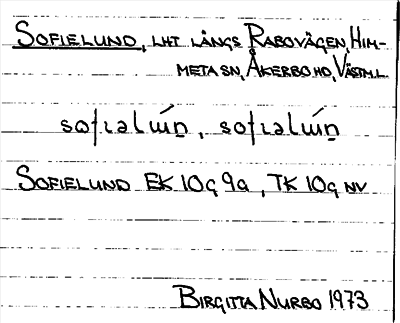 SOFIELUND, LHT LÄNGS RABOVÄGEN, HIM-
META SN, ÅKERBO HD, VÄSTML.
SOFIELUND EK 10G 9a, TK 10G NV
BIRGITTA NURBO 1973